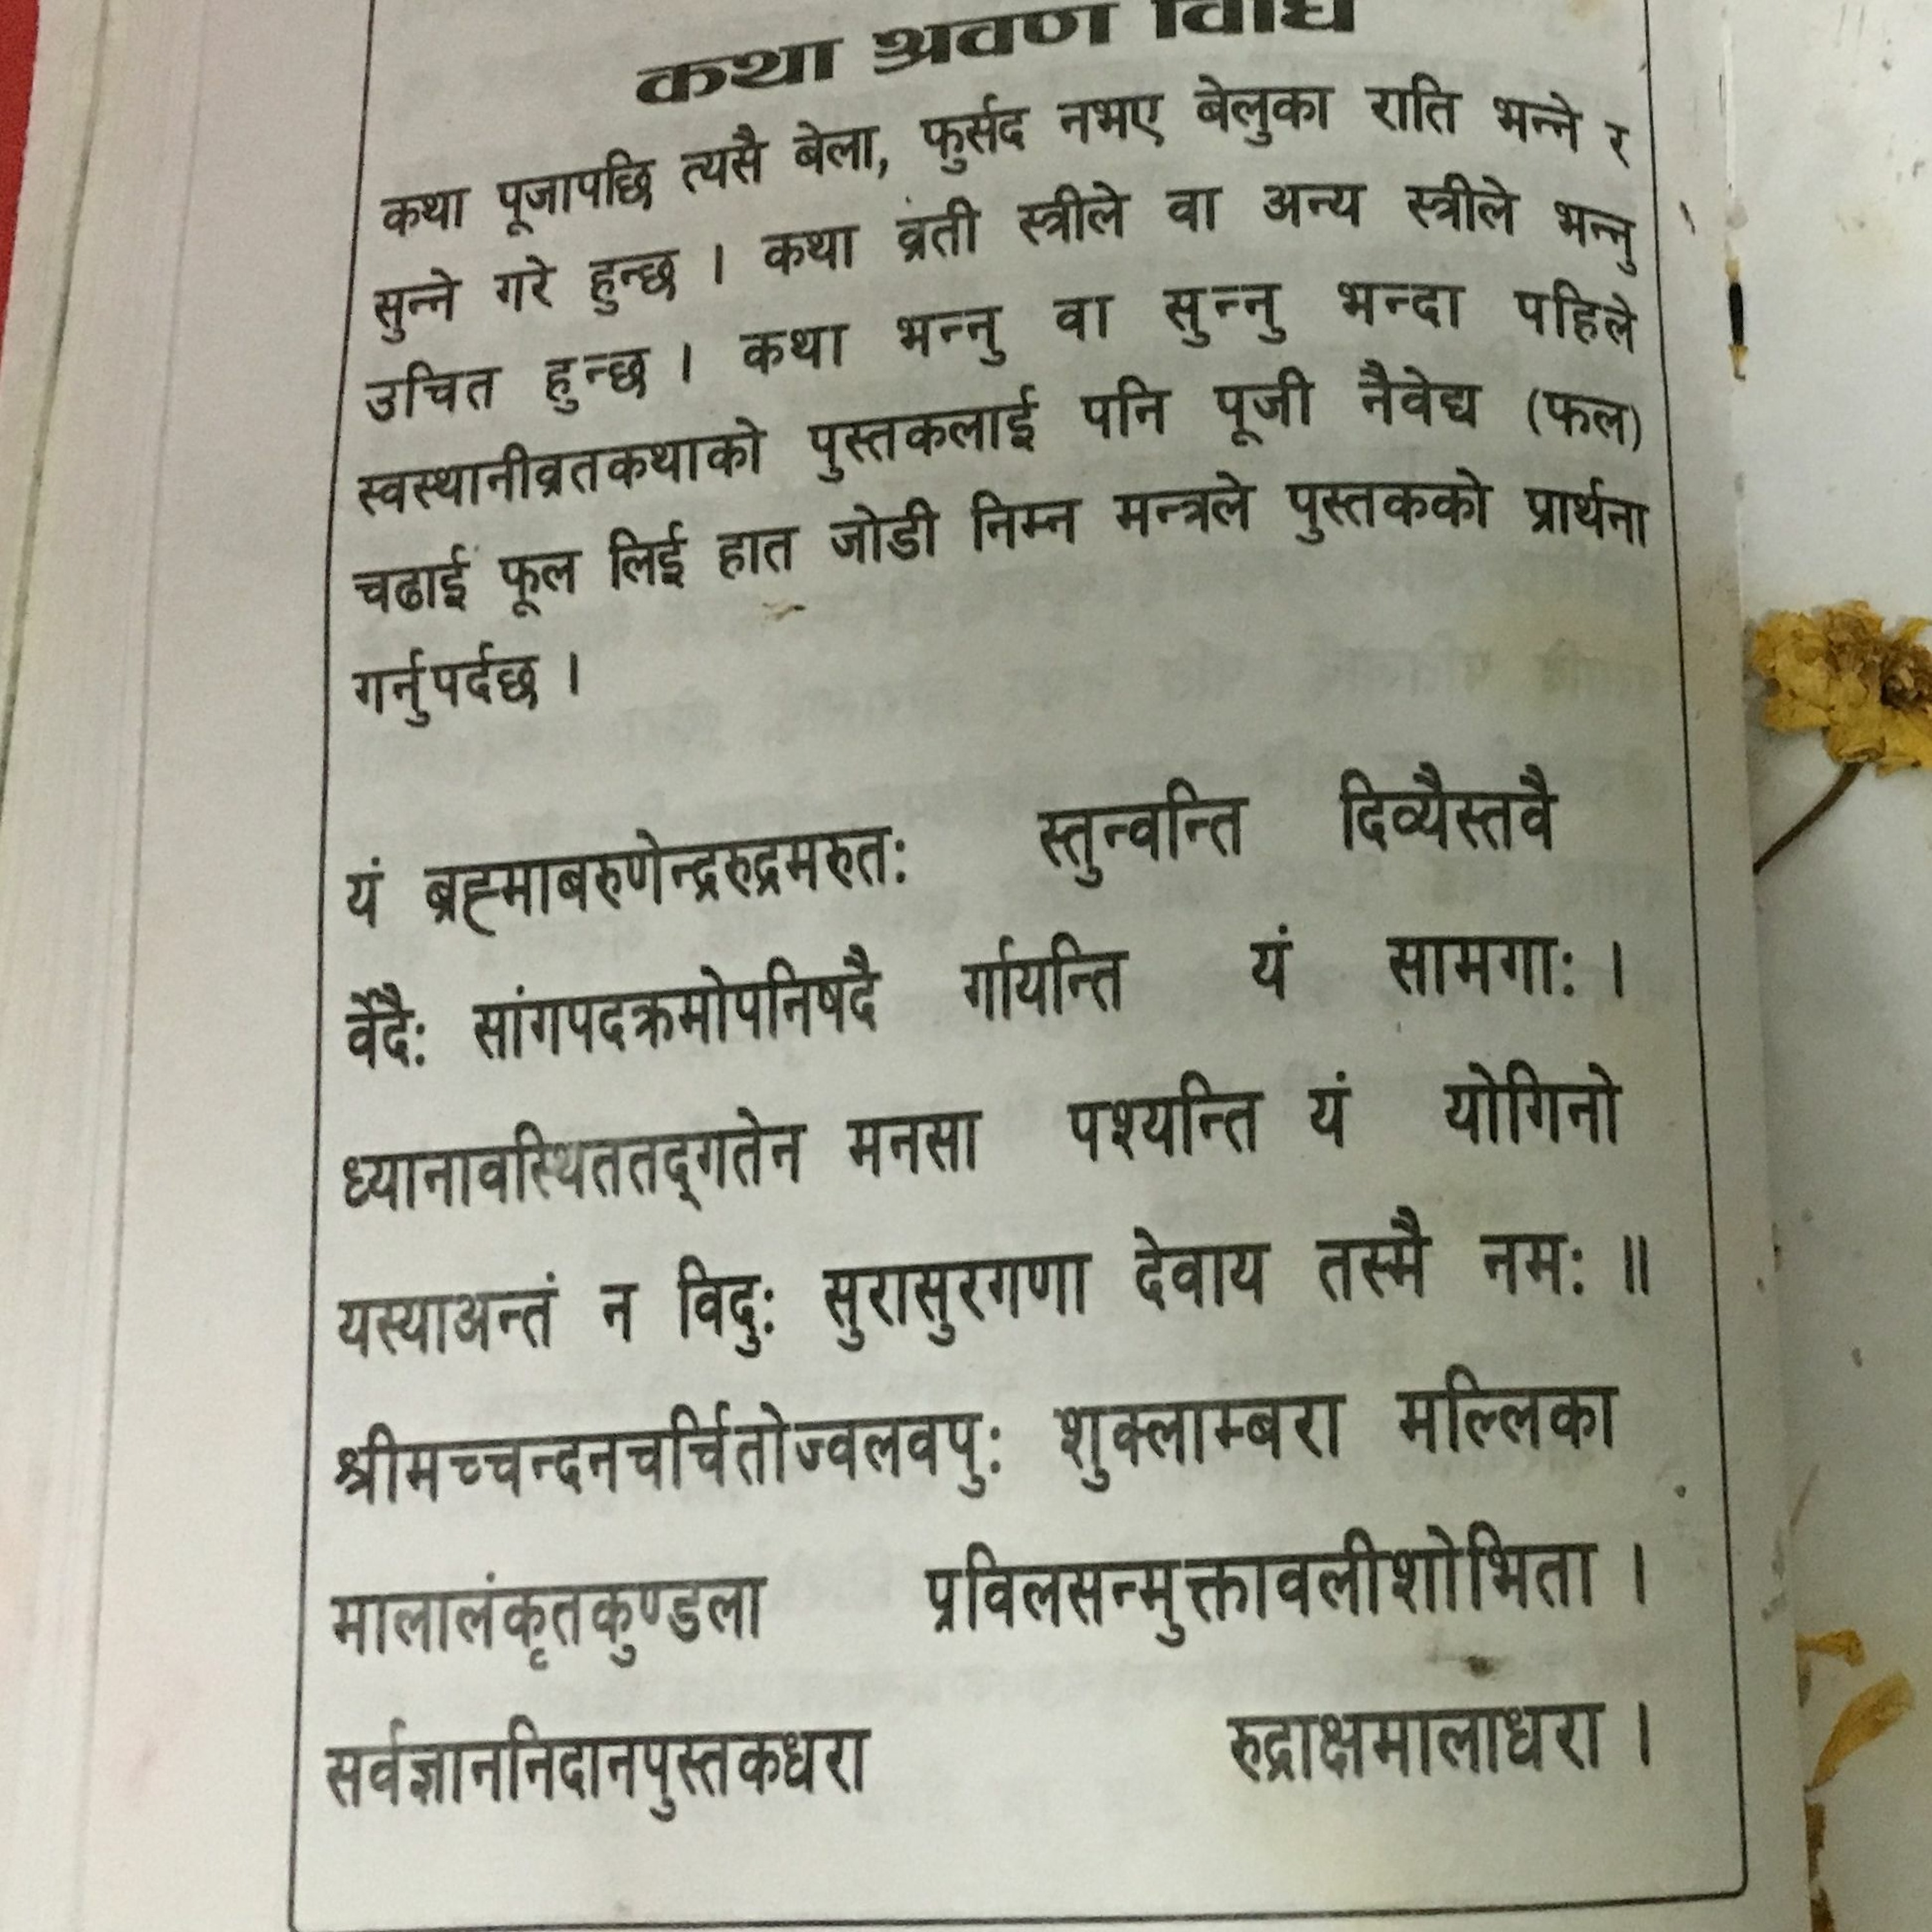 कथा श्रवण विधि
कथा पूजापछि त्यसै बेला, फुर्सद नभए बेलुका राति भन्ने र
सुन्ने गरे हुन्छ । कथा व्रती स्त्रीले वा अन्य स्त्रीले भन्नु
उचित हुन्छ । कथा भन्नु वा सुन्नु भन्दा पहिले
स्वस्थानीव्रतकथाको पुस्तकलाई पनि पूजी नैवेद्य (फल)
चढाई फूल लिई हात जोडी निम्न मन्त्रले पुस्तकको प्रार्थना
गर्नुपर्दछ ।
यं ब्रह्माबरुणेन्द्ररुद्रमरुतः स्तुन्वन्ति दिव्यैस्तवै
र्वेदैः सांगपदक्रमोपनिषदै र्गायन्ति यं सामगाः ।
ध्यानावस्थिततद्गतेन मनसा पश्यन्ति यं योगिनो
यस्याअन्तं न विदुः सुरासुरगणा देवाय तस्मै नमः ॥
श्रीमच्चन्दनचर्चितोज्वलवपुः शुक्लाम्बरा मल्लिका
मालालंकृतकुण्डला प्रविलसन्मुक्तावलीशोभिता ।
सर्वज्ञाननिदानपुस्तकधरा रुद्राक्षमालाधरा ।